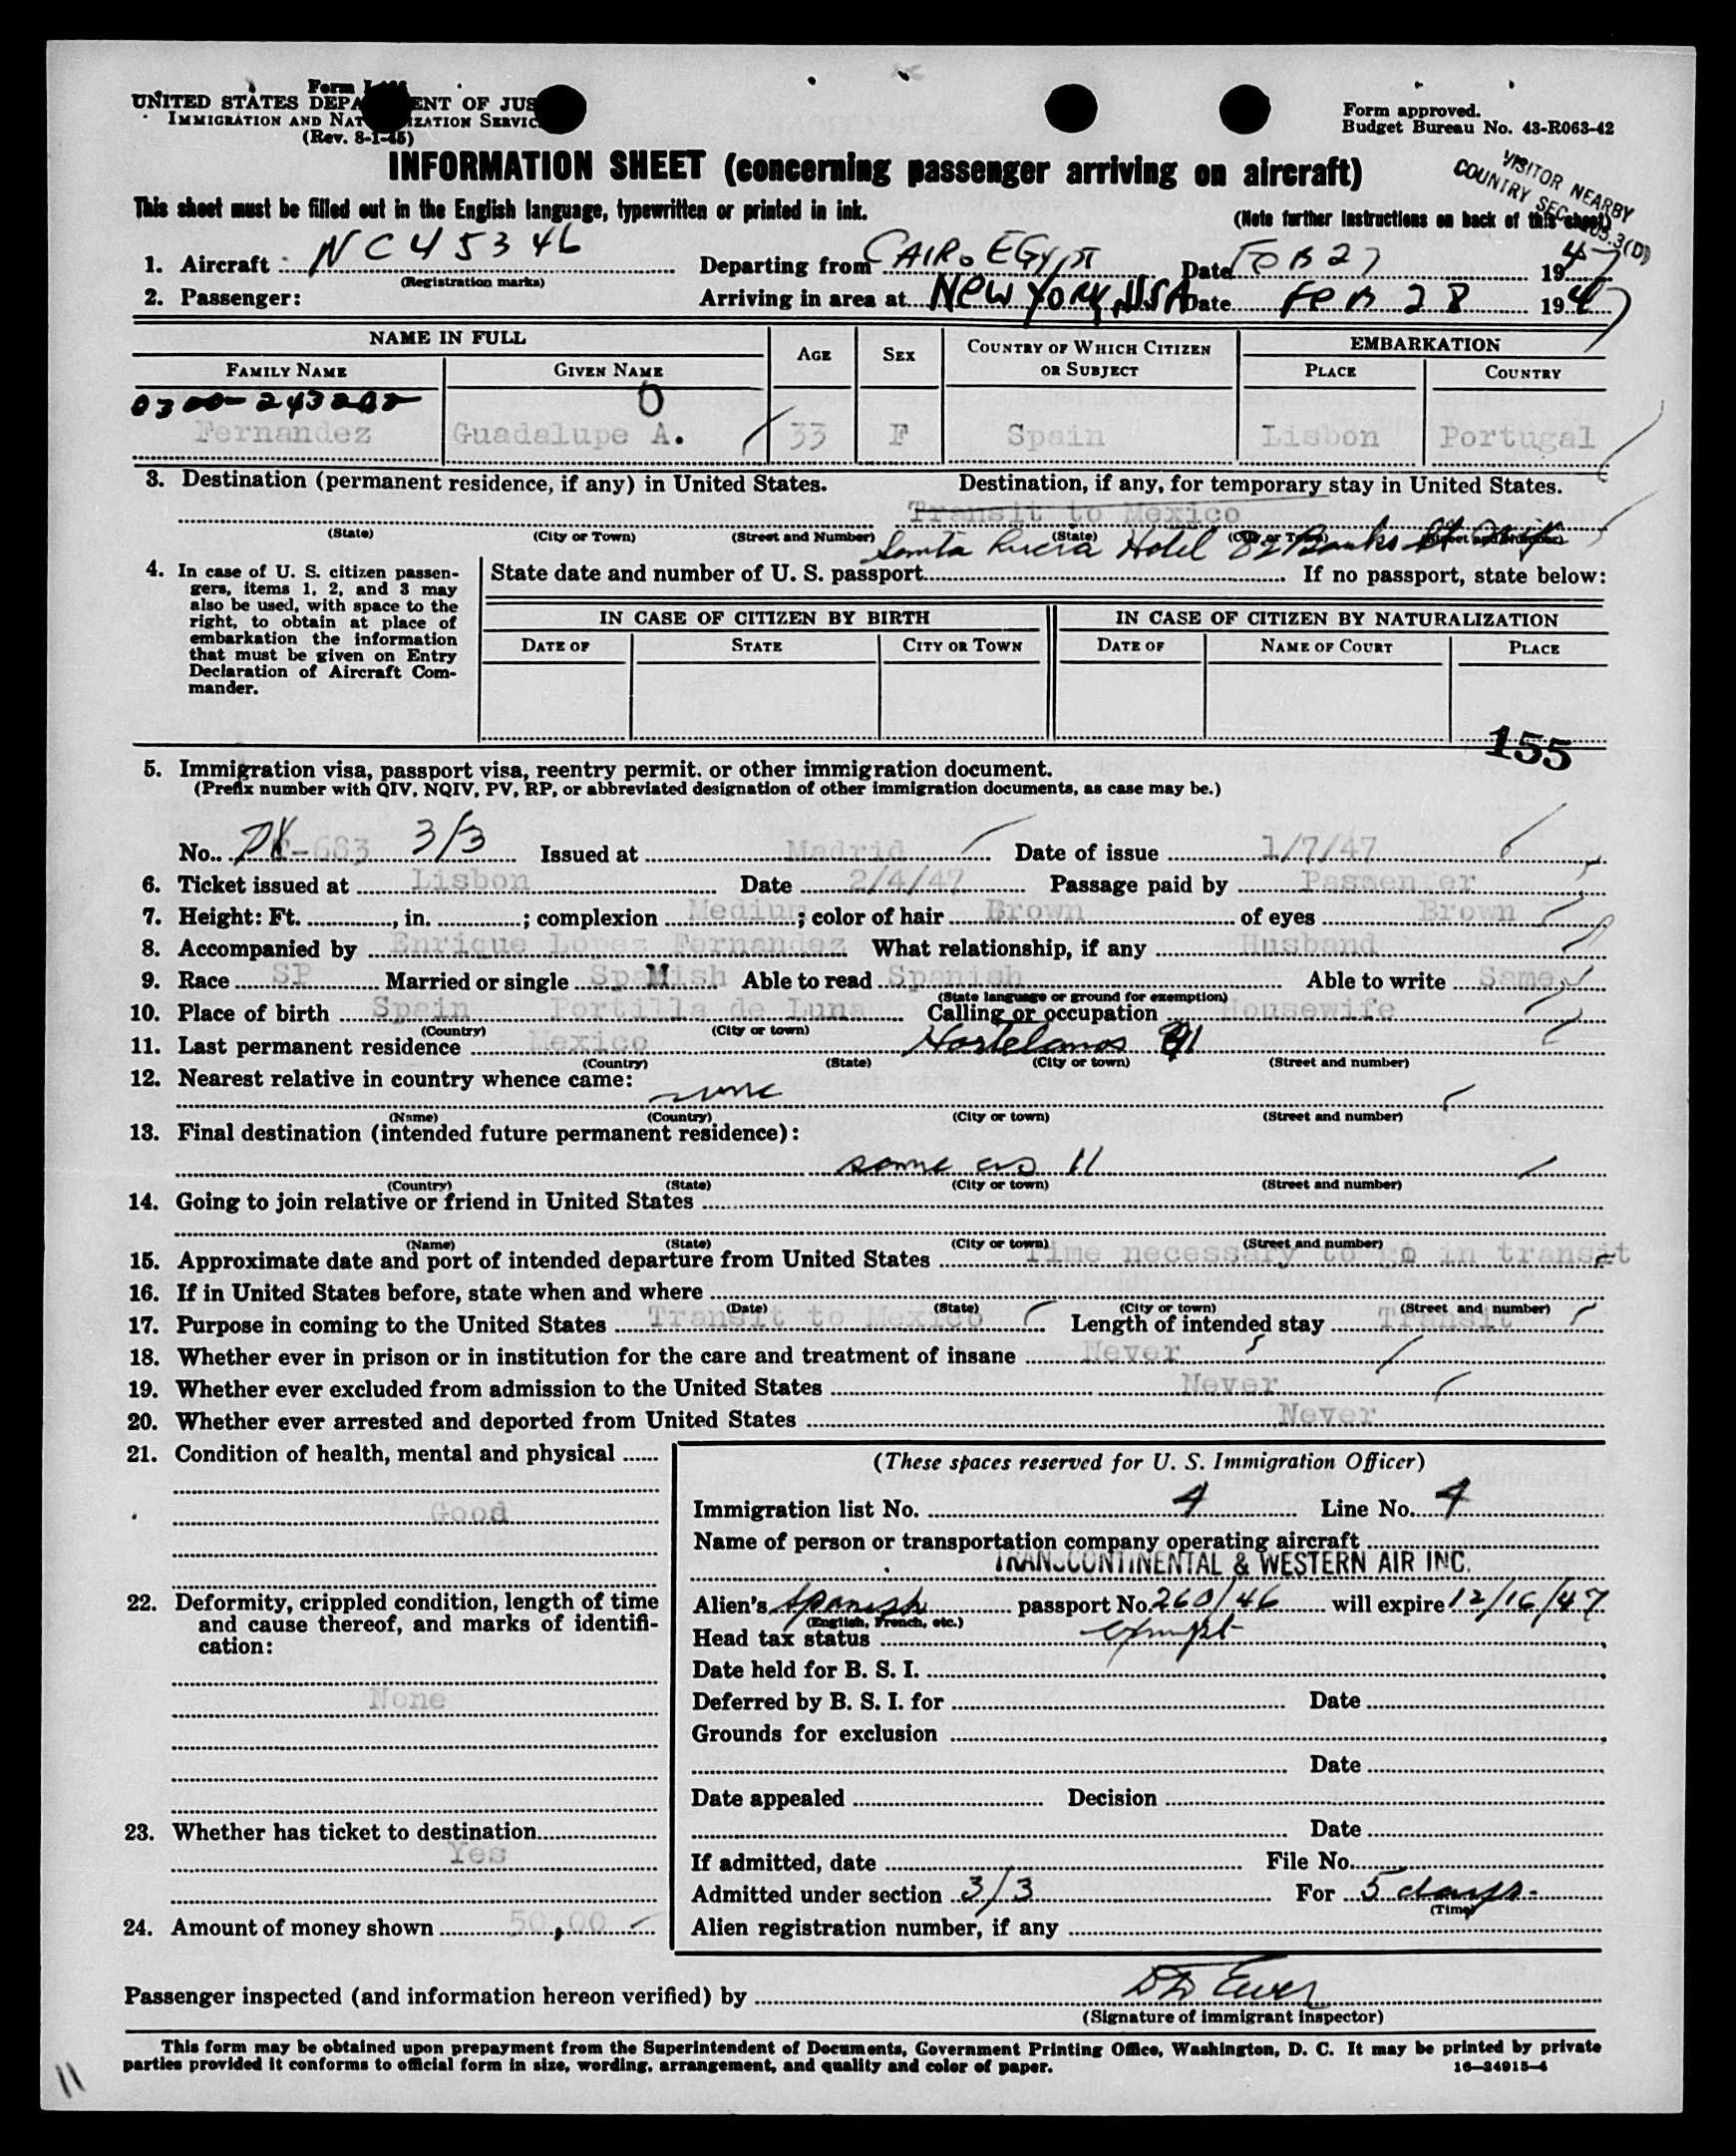 Form I
UNITED STATES DEPA ENT OF JUS
IMMIGRATION AND NAT IZATION SERVIC
(Rev. 8-1-45)
Form approved.
Budget Bureau No. 43-R063-42
INFORMATION SHEET (concerning passenger arriving on aircraft)
VISITOR NEARBY
COUNTRY SEC. 105.3(D)
This sheet must be filled out in the English language, typewritten or printed in ink.
(Note further instructions on back of this sheet)
1. Aircraft NC45346 Departing from CAIRO EGYPT Date FEB 27 1947
(Registration marks)
2. Passenger: Arriving in area at NEW YORK, USA Date FEB 28 1947
NAME IN FULL AGE SEX COUNTRY OF WHICH CITIZEN OR SUBJECT EMBARKATION
FAMILY NAME GIVEN NAME PLACE COUNTRY
0300-243202 O
Fernandez Guadalupe A. 33 F Spain Lisbon Portugal
3. Destination (permanent residence, if any) in United States. Destination, if any, for temporary stay in United States.
Transit to Mexico
(State) (City or Town) (Street and Number) (State) (City or Town) (Street and Number)
Hotel
4. In case of U. S. citizen passengers, items 1, 2, and 3 may also be used, with space to the right, to obtain at place of embarkation the information that must be given on Entry Declaration of Aircraft Commander.
State date and number of U. S. passport If no passport, state below:
IN CASE OF CITIZEN BY BIRTH IN CASE OF CITIZEN BY NATURALIZATION
DATE OF STATE CITY OR TOWN DATE OF NAME OF COURT PLACE
155
5. Immigration visa, passport visa, reentry permit. or other immigration document.
(Prefix number with QIV, NQIV, PV, RP, or abbreviated designation of other immigration documents, as case may be.)
No. -683 3/3 Issued at Madrid Date of issue 1/7/47
6. Ticket issued at Lisbon Date 2/4/47 Passage paid by Passenfer
7. Height: Ft. , in. ; complexion Medium ; color of hair Brown of eyes Brown
8. Accompanied by Enrique Lopez Fernandez What relationship, if any Husband
9. Race SP Married or single Spanish M Able to read Spanish Able to write Same
(State language or ground for exemption)
10. Place of birth Spain Portilla de Luna Calling or occupation Housewife
(Country) (City or town)
11. Last permanent residence Mexico Hortelanos 91
(Country) (State) (City or town) (Street and number)
12. Nearest relative in country whence came:
none
(Name) (Country) (City or town) (Street and number)
13. Final destination (intended future permanent residence):
same as 11
(Country) (State) (City or town) (Street and number)
14. Going to join relative or friend in United States
(Name) (State) (City or town) (Street and number)
15. Approximate date and port of intended departure from United States Time necessary to go in transit
16. If in United States before, state when and where
(Date) (State) (City or town) (Street and number)
17. Purpose in coming to the United States Transit to Mexico Length of intended stay Transit
18. Whether ever in prison or in institution for the care and treatment of insane Never
19. Whether ever excluded from admission to the United States Never
20. Whether ever arrested and deported from United States Never
21. Condition of health, mental and physical
Good
22. Deformity, crippled condition, length of time
and cause thereof, and marks of identifi-
cation:
None
23. Whether has ticket to destination
Yes
24. Amount of money shown 50,00
(These spaces reserved for U. S. Immigration Officer)
Immigration list No. 4 Line No. 4
Name of person or transportation company operating aircraft
TRANSCONTINENTAL & WESTERN AIR INC.
Alien's Spanish passport No. 260/46 will expire 12/16/47
(English, French, etc.)
Head tax status exempt
Date held for B. S. I.
Deferred by B. S. I. for Date
Grounds for exclusion
Date
Date appealed Decision
Date
If admitted, date File No.
Admitted under section 3/3 For 5 days.
(Time)
Alien registration number, if any
Passenger inspected (and information hereon verified) by
(Signature of immigrant inspector)
This form may be obtained upon prepayment from the Superintendent of Documents, Government Printing Office, Washington, D. C. It may be printed by private
parties provided it conforms to official form in size, wording, arrangement, and quality and color of paper. 16—24915-4
11